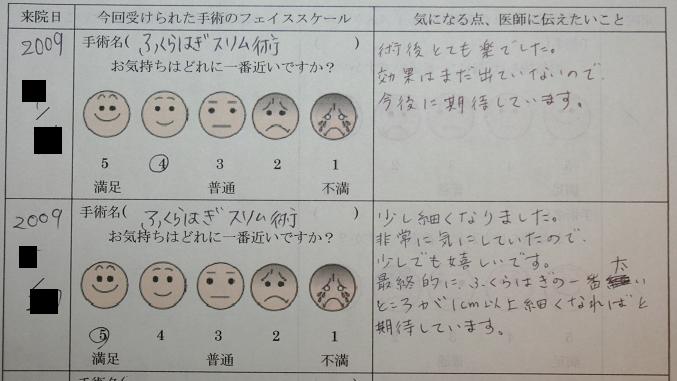 来院日 今回受けられた手術のフェイススケール 気になる点、医師に伝えたいこと
2009
手術名( ふくらはぎスリム術 )
お気持ちはどれに一番近いですか？
5 4 3 2 1
満足 普通 不満
術後とても楽でした。
効果はまだ出ていないので、
今後に期待しています。
2009
手術名( ふくらはぎスリム術 )
お気持ちはどれに一番近いですか？
5 4 3 2 1
満足 普通 不満
少し細くなりました。
非常に気にしていたので、
少しでも嬉しいです。
最終的に、ふくらはぎの一番太い
ところが1cm以上細くなればと
期待しています。